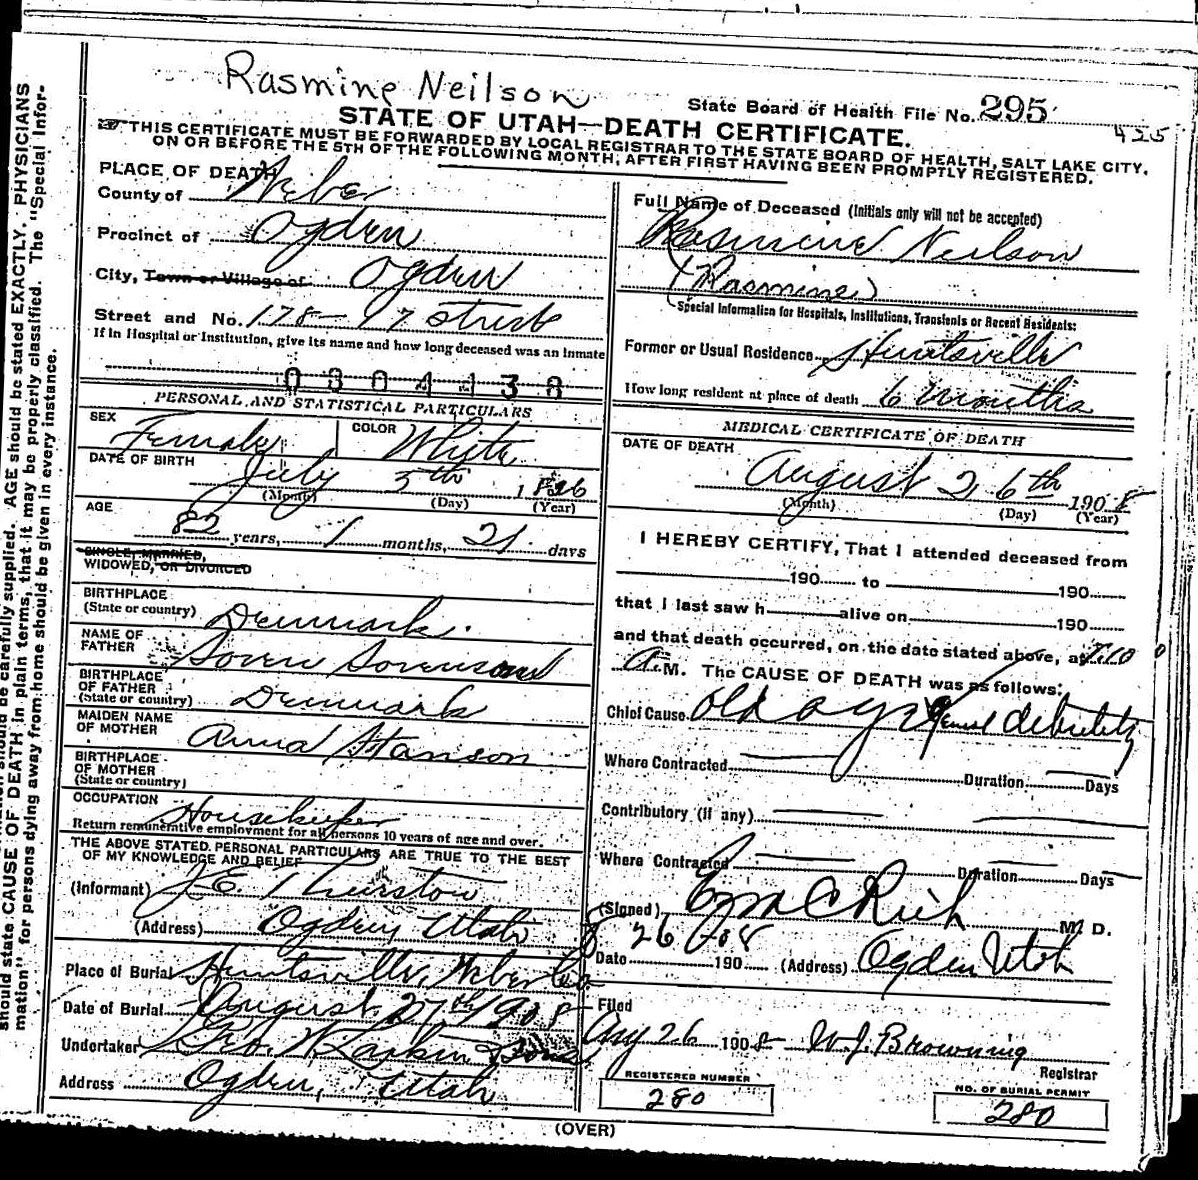 Rasmine Neilson
State Board of Health File No. 295
425
STATE OF UTAH—DEATH CERTIFICATE.
THIS CERTIFICATE MUST BE FORWARDED BY LOCAL REGISTRAR TO THE STATE BOARD OF HEALTH, SALT LAKE CITY,
ON OR BEFORE THE 5TH OF THE FOLLOWING MONTH, AFTER FIRST HAVING BEEN PROMPTLY REGISTERED.
PLACE OF DEATH
County of Weber
Precinct of Ogden
City, Town or Village of Ogden
Street and No. 178-17 street
If in Hospital or Institution, give its name and how long deceased was an inmate
0304138
PERSONAL AND STATISTICAL PARTICULARS
SEX Female COLOR White
DATE OF BIRTH July 5th 1826
(Month) (Day) (Year)
AGE 82 years, 1 months, 21 days
SINGLE, MARRIED,
WIDOWED, OR DIVORCED
BIRTHPLACE
(State or country) Denmark.
NAME OF
FATHER Soren Sorenson
BIRTHPLACE
OF FATHER
(State or country) Denmark
MAIDEN NAME
OF MOTHER Anna Hanson
BIRTHPLACE
OF MOTHER
(State or country)
OCCUPATION Housekeeper
Return remunerative employment for all persons 10 years of age and over.
THE ABOVE STATED PERSONAL PARTICULARS ARE TRUE TO THE BEST
OF MY KNOWLEDGE AND BELIEF
(Informant) J. E. Thurston
(Address) Ogden, Utah
Place of Burial Huntsville, Weber Co
Date of Burial August 27th 1908
Undertaker Geo. W. Larkin & Sons
Address Ogden, Utah
Full Name of Deceased (Initials only will not be accepted)
Rasmine Neilson
(Rasmine)
(Special Information for Hospitals, Institutions, Transients or Recent Residents:
Former or Usual Residence Huntsville
How long resident at place of death 6 months
MEDICAL CERTIFICATE OF DEATH
DATE OF DEATH August 26th 1908
(Month) (Day) (Year)
I HEREBY CERTIFY, That I attended deceased from
190 to 190
that I last saw h alive on 190
and that death occurred, on the date stated above, at 7.10
A M. The CAUSE OF DEATH was as follows:
Chief Cause Old age debility
Where Contracted Duration Days
Contributory (if any)
Where Contracted Duration Days
(Signed) Ezra C Rich M. D.
8 26 08
Date 190 (Address) Ogden Utah
Filed
Aug 26 1908 W. J. Browning
Registrar
REGISTERED NUMBER
280
NO. OF BURIAL PERMIT
280
(OVER)
AGE should be stated EXACTLY. PHYSICIANS
should state CAUSE OF DEATH in plain terms, that it may be properly classified. The "Special Infor-
mation" for persons dying away from home should be given in every instance.